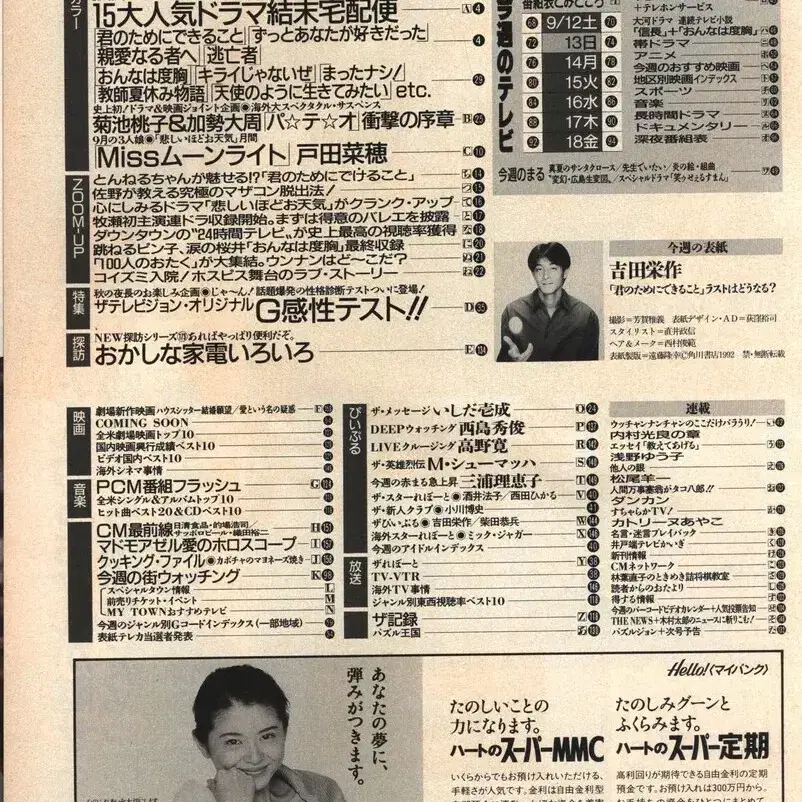 カラー
15大人気ドラマ結末宅配便
「君のためにできること」「ずっとあなたが好きだった」
親愛なる者へ」「逃亡者」
「おんなは度胸」「キライじゃないぜ」「まったナシ!」
「教師夏休み物語」「天使のように生きてみたい」etc.
史上初!ドラマ&映画ジョイント企画◉海外大スペクタクル・サスペンス
菊池桃子&加勢大周「パ☆テ☆オ」衝撃の序章
9月の3人娘◉「悲しいほどお天気」月間
「Missムーンライト」戸田菜穂
ZOOM-UP
とんねるちゃんが魅せる!?「君のためにでけること」
佐野が教える究極のマザコン脱出法!
心にしみるドラマ「悲しいほどお天気」がクランク・アップ
牧瀬初主演連ドラ収録開始。まずは得意のバレエを披露
ダウンタウンの“24時間テレビ”が史上最高の視聴率獲得
跳ねるピン子、涙の桜井「おんなは度胸」最終収録
「100人のおたく」が大集結。ウンナンはど〜こだ?
コイズミ入院!ホスピス舞台のラブ・ストーリー
特集
秋の夜長のお楽しみ企画◉じゃ〜ん!話題爆発の性格診断テストついに登場!
ザテレビジョン・オリジナルG感性テスト!!
探訪
NEW探訪シリーズ あればやっぱり便利だぞ。
おかしな家電いろいろ
今週のテレビ
番組表とみどころ
9/12土
13日
14月
15火
16水
17木
18金
+テレホンサービス
大河ドラマ 連続テレビ小説
「信長」+「おんなは度胸」
帯ドラマ
アニメ
今週のおすすめ映画
地区別映画インデックス
スポーツ
音楽
長時間ドラマ
ドキュメンタリー
深夜番組表
今週のまる
真夏のサンタクロース/先生でいたい/炎の絵・組曲
“変幻・広島生変図”/スペシャルドラマ「笑ゥせぇるすまん」
今週の表紙
吉田栄作
「君のためにできること」ラストはどうなる?
撮影=芳賀雅義 表紙デザイン・AD=荻窪裕司
スタイリスト=直井政信
ヘア&メーク=西村俊範
表紙製版=遠藤隆幸©角川書店1992 禁・無断転載
映画
劇場新作映画 ハウスシッター結婚願望/愛という名の疑惑
COMING SOON
全米劇場映画トップ10
国内映画興行成績ベスト10
ビデオ国内ベスト10
海外シネマ事情
音楽
PCM番組フラッシュ
全米シングル&アルバムトップ10
ヒット曲ベスト20&CDベスト10
CM最前線 日清食品・的場浩司/サッポロビール・織田裕二
マドモアゼル愛のホロスコープ
クッキング・ファイル◉カボチャのマヨネーズ焼き
今週の街ウォッチング
スペシャルタウン情報
前売りチケット・イベント
MY TOWNおすすめテレビ
今週のジャンル別Gコードインデックス(一部地域)
表紙テレカ当選者発表
ぴいぷる
ザ・メッセージ いしだ壱成
DEEPウォッチング 西島秀俊
LIVEクルージング 高野寛
ザ・英雄烈伝 M・シューマッハ
今週の赤まる急上昇 三浦理恵子
ザ・スターれぽーと◉酒井法子/西田ひかる
ザ・新人クラブ◉小川博史
ザぴいぷる◉吉田栄作/柴田恭兵
海外スターれぽーと◉ミック・ジャガー
今週のアイドルインデックス
放送
ザれぽーと
TV-VTR
海外TV事情
ジャンル別東西視聴率ベスト10
ザ記録
パズル王国
連載
ウッチャンナンチャンのここだけバラうり!
内村光良の章
エッセイ「教えてあげる」
浅野ゆう子
他人の銀
松尾羊一
人間万事塞翁がタコ八郎!!
ダンカン
すちゃらかTV!
カトリーヌあやこ
名言・迷言プレイバック
井戸端テレビかいぎ
新刊情報
CMネットワーク
林葉直子のときめき詰将棋教室
読者からのおたより
得する情報
今週のバーコードビデオカレンダー+人気投票告知
THE NEWS+木村太郎のニュースに斬りこむ!
パズルジョン+次号予告
あなたの夢に、
弾みがつきます。
Hello!〈マイバンク〉
たのしいことの
力になります。
ハートのスーパーMMC
いくらからでもお預け入れいただける、
手軽さが人気です。金利は自由金利型
たのしみグーンと
ふくらみます。
ハートのスーパー定期
高利回りが期待できる自由金利の定期
預金です。お預け入れは300万円から。